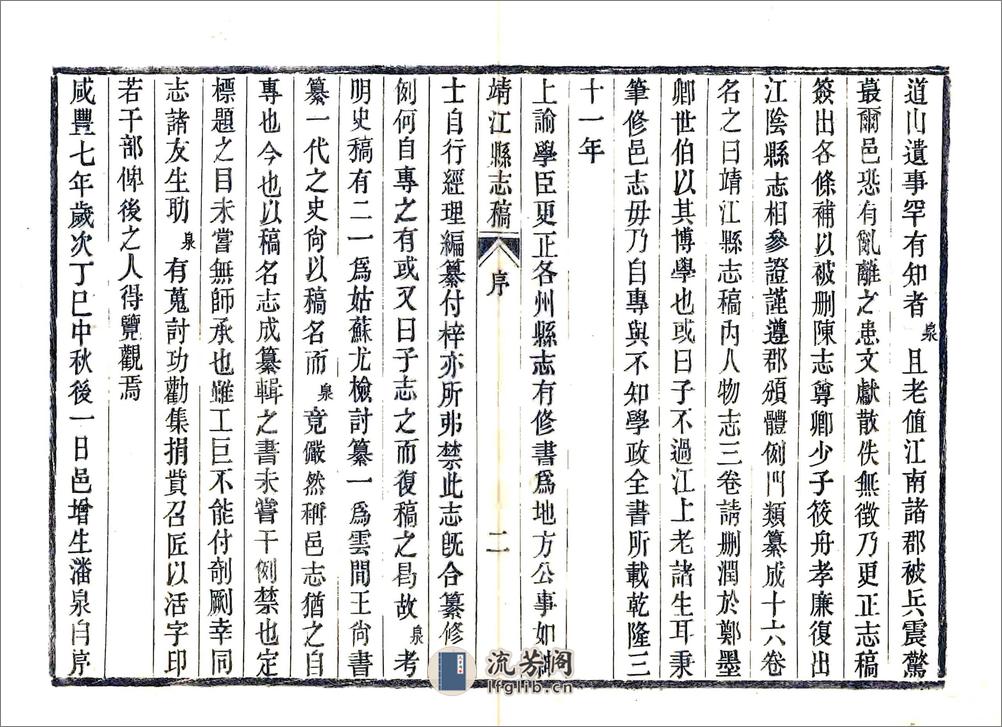 道山遺事罕有知者泉且老値江南諸郡被兵震驚
蕞爾邑恐有亂離之患文獻散佚無徴乃更正志稿
簽出各條補以被删陳志尊卿少子筱舟孝廉復出
江陰縣志相參證謹遵郡頒體例門類纂成十六卷
名之曰靖江縣志稿內人物志三卷請删潤於鄭墨
卿世伯以其博學也或曰子不過江上老諸生耳秉
筆修邑志毋乃自專與不知學政全書所載乾隆三
十一年
上諭學臣更正各州縣志有修書爲地方公事如紳
靖江縣志稿 序 二
士自行經理編纂付梓亦所弗禁此志旣合纂修
例何自專之有或又曰子志之而復稿之曷故泉考
明史稿有二一爲姑蘇尤檢討纂一爲雲間王尙書
纂一代之史尙以稿名而泉竟儼然稱邑志猶之自
專也今也以稿名志成纂輯之書未嘗干例禁也定
標題之目未嘗無師承也雖工巨不能付剞劂幸同
志諸友生助泉有蒐討功勸集捐貲召匠以活字印
若干部俾後之人得覽觀焉
咸豐七年歲次丁巳中秋後一日邑增生潘泉自序
流芳阁
lfglib.cn